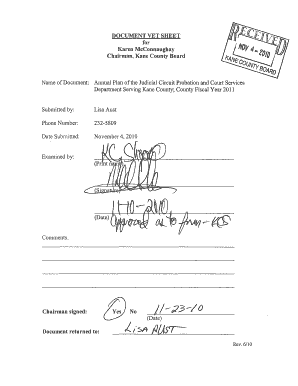 DOCUMENT VET SHEET
for
Karen McConnaughay
Chairman, Kane County Board
RECEIVED
NOV 4 - 2010
KANE COUNTY BOARD
Name of Document: Annual Plan of the Judicial Circuit Probation and Court Services
Department Serving Kane County; County Fiscal Year 2011
Submitted by: Lisa Aust
Phone Number: 232-5809
Date Submitted: November 4, 2010
Examined by:
(Print name)
(Signature)
11-10-2010
(Date)
Approved as to form - KCS
Comments:
Chairman signed: Yes No 11-23-10
(Date)
Document returned to: LISA AUST
Rev. 6/10